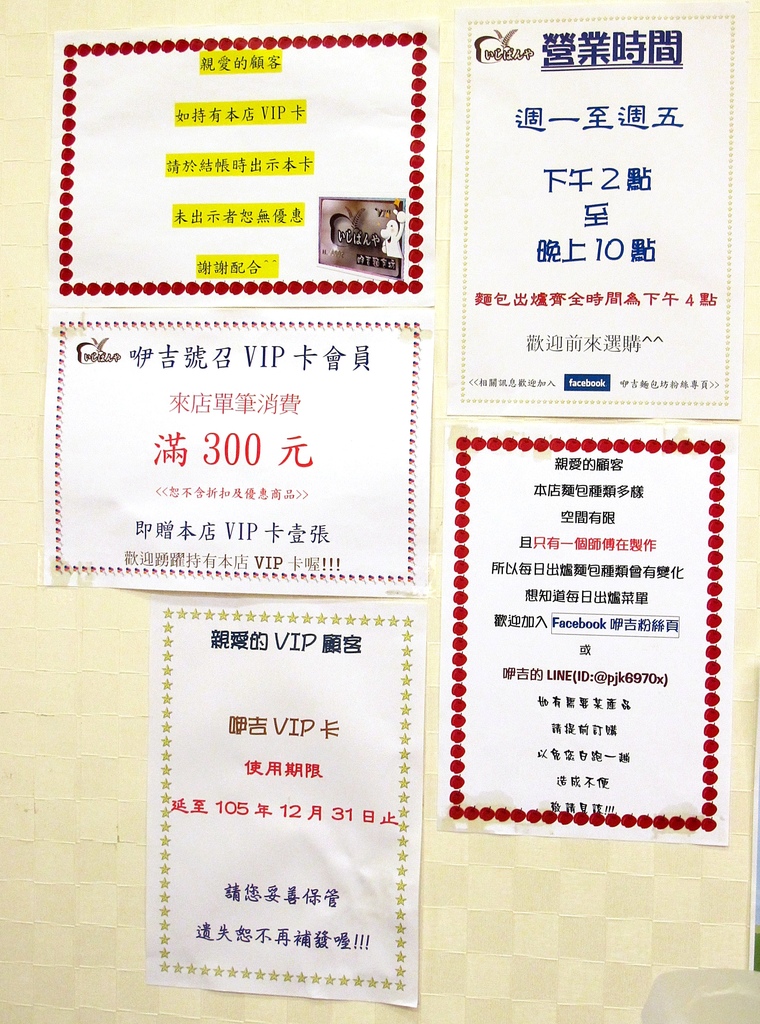 親愛的顧客
如持有本店 VIP 卡
請於結帳時出示本卡
未出示者恕無優惠
謝謝配合^^
いじぱんや
いじぱんや
營業時間
週一至週五
下午 2 點
至
晚上 10 點
麵包出爐齊全時間為下午 4 點
歡迎前來選購^^
<<相關訊息歡迎加入 facebook 咿吉麵包坊粉絲專頁>>
いじぱんや
咿吉號召 VIP 卡會員
來店單筆消費
滿 300 元
<<恕不含折扣及優惠商品>>
即贈本店 VIP 卡壹張
歡迎踴躍持有本店 VIP 卡喔!!!
親愛的顧客
本店麵包種類多樣
空間有限
且只有一個師傅在製作
所以每日出爐麵包種類會有變化
想知道每日出爐菜單
歡迎加入 Facebook 咿吉粉絲頁
或
咿吉的 LINE(ID:@pjk6970x)
如有需要某產品
請提前訂購
以免您白跑一趟
造成不便
敬請見諒!!!
親愛的 VIP 顧客
咿吉 VIP 卡
使用期限
延至 105 年 12 月 31 日止
請您妥善保管
遺失恕不再補發喔!!!